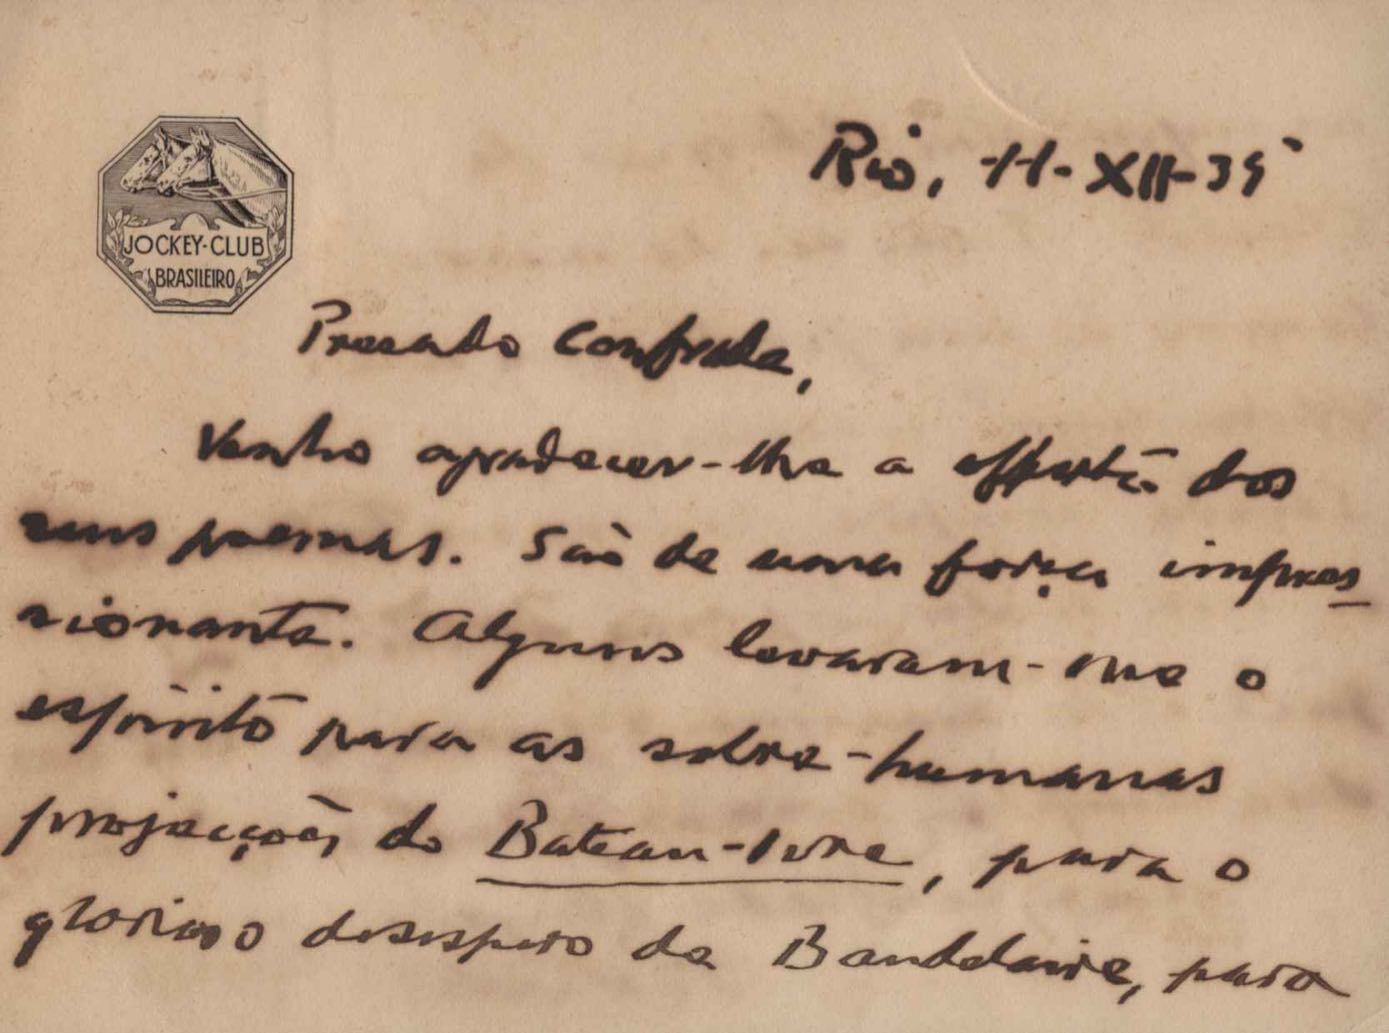 JOCKEY-CLUB
BRASILEIRO
Rio, 11-XII-35
Presado confrade,
Venho agradecer-lhe a offerta dos
seus poemas. São de uma força impres-
sionante. Alguns levaram-me o
espirito para as sobre-humanas
projecções do Bateau-Ivre, para o
glorioso desespero de Baudelaire, para